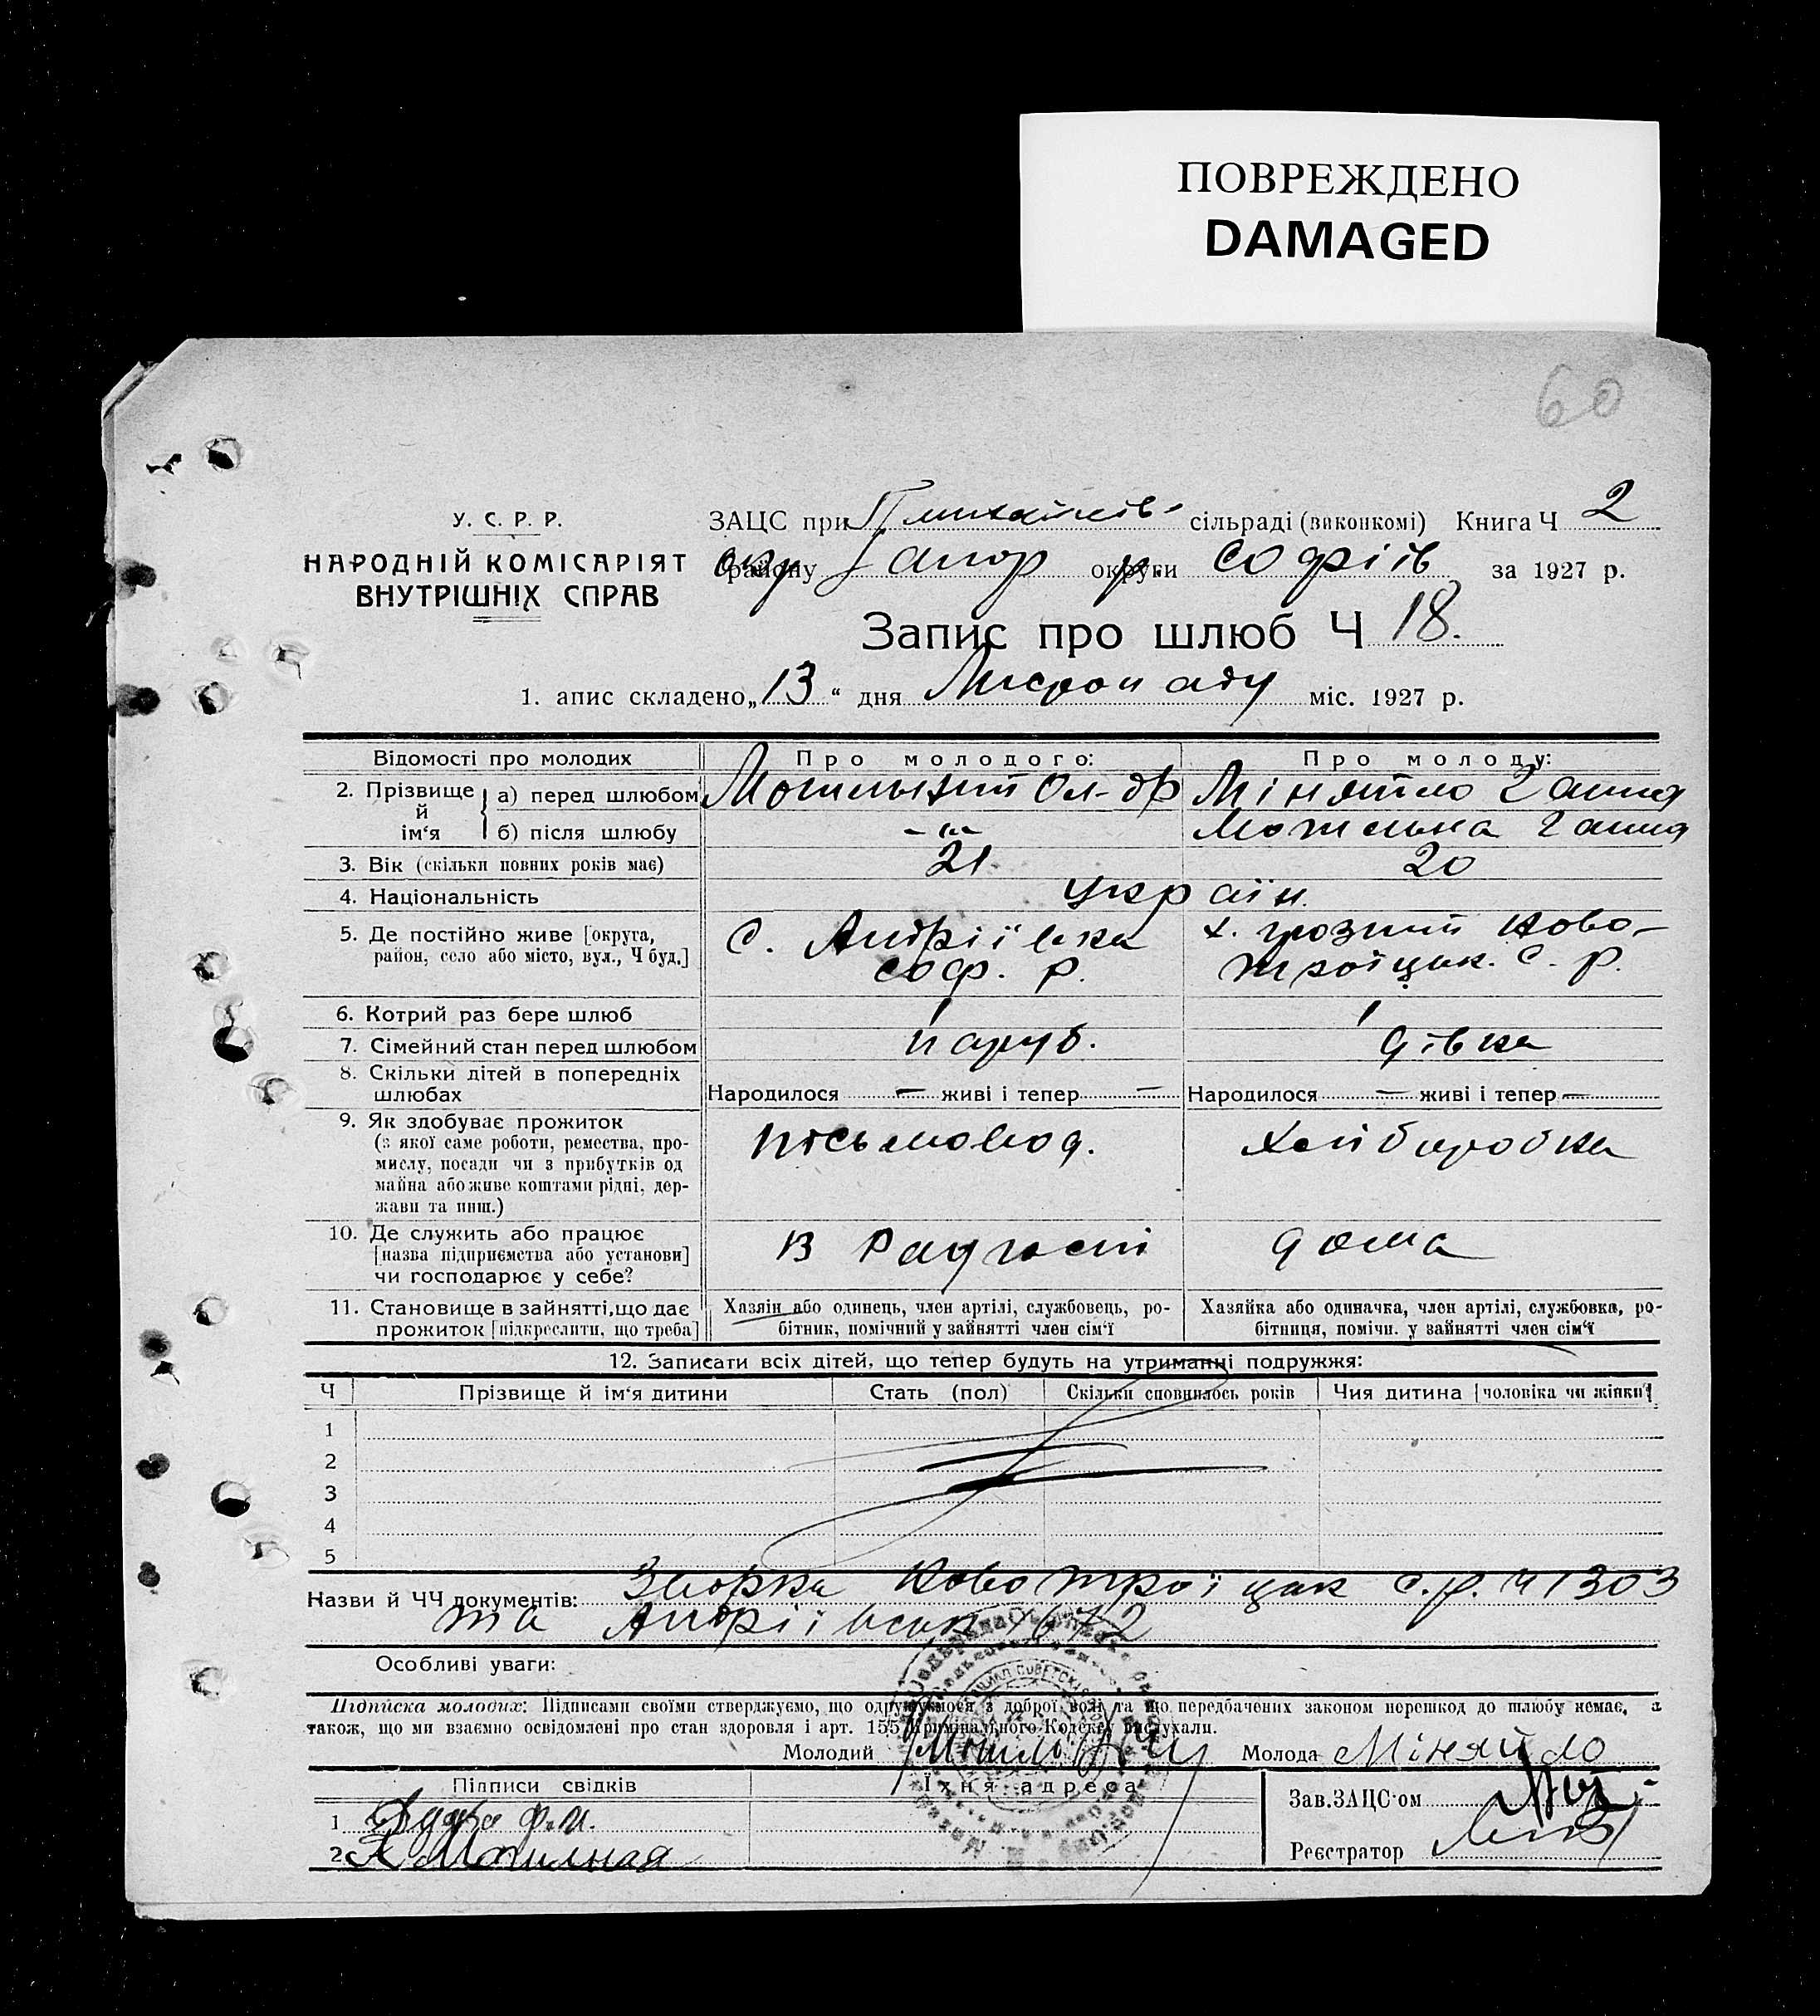 ПОВРЕЖДЕНО
DAMAGED
60
У. С. Р. Р.
НАРОДНІЙ КОМІСАРІЯТ
ВНУТРІШНІХ СПРАВ
ЗАЦС при сільраді (виконкомі) Книга Ч 2
окр району Запор округи р. Софіїв за 1927 р.
Запис про шлюб Ч 18.
1. апис складено „13“ дня Листопаду міс. 1927 р.
Відомості про молодих Про молодого: Про молоду:
2. Прізвище й ім‘я а) перед шлюбом Могильний Ол-др Міняйло Ганна
б) після шлюбу -"- Могильна Ганна
3. Вік (скільки повних років має) 21 20
4. Національність україн.
5. Де постійно живе [округа, район, село або місто, вул., Ч буд.] с. Андріївка Соф. р. х. Грозний Ново-троїцьк. С. р.
6. Котрий раз бере шлюб 1 1
7. Сімейний стан перед шлюбом паруб. дівка
8. Скільки дітей в попередніх шлюбах Народилося — живі і тепер — Народилося — живі і тепер —
9. Як здобуває прожиток (з якої саме роботи, ремества, промислу, посади чи з прибутків од майна або живе коштами рідні, держави та инш.) письмовод. хліборобка
10. Де служить або працює [назва підприємства або установи] чи господарює у себе? в Радгоспі дома
11. Становище в зайнятті, що дає прожиток [підкреслити, що треба] Хазяін або одинець, член артілі, службовець, робітник, помічний у зайнятті член сім‘ї Хазяйка або одиначка, член артілі, службовка, робітниця, помічн. у зайнятті член сім‘ї
12. Записати всіх дітей, що тепер будуть на утриманні подружжя:
Ч Прізвище й ім‘я дитини Стать (пол) Скільки сповнилось років Чия дитина [чоловіка чи жінки]
1
2
3
4
5
Назви й ЧЧ документів: Зборка Новотроїцьк С.р. Ч 1303
та Андріївськ 1672
Особливі уваги:
Підписка молодих: Підписами своїми стверджуємо, що одружуємося з доброї волі та що передбачених законом перешкод до шлюбу немає, а
також, що ми взаємно освідомлені про стан здоровля і арт. 155 Кримінального Кодексу вислухали.
Молодий Молода Міняйло
Підписи свідків Їхня адреса Зав. ЗАЦС‘ом
1
2 Могилная Реєстратор